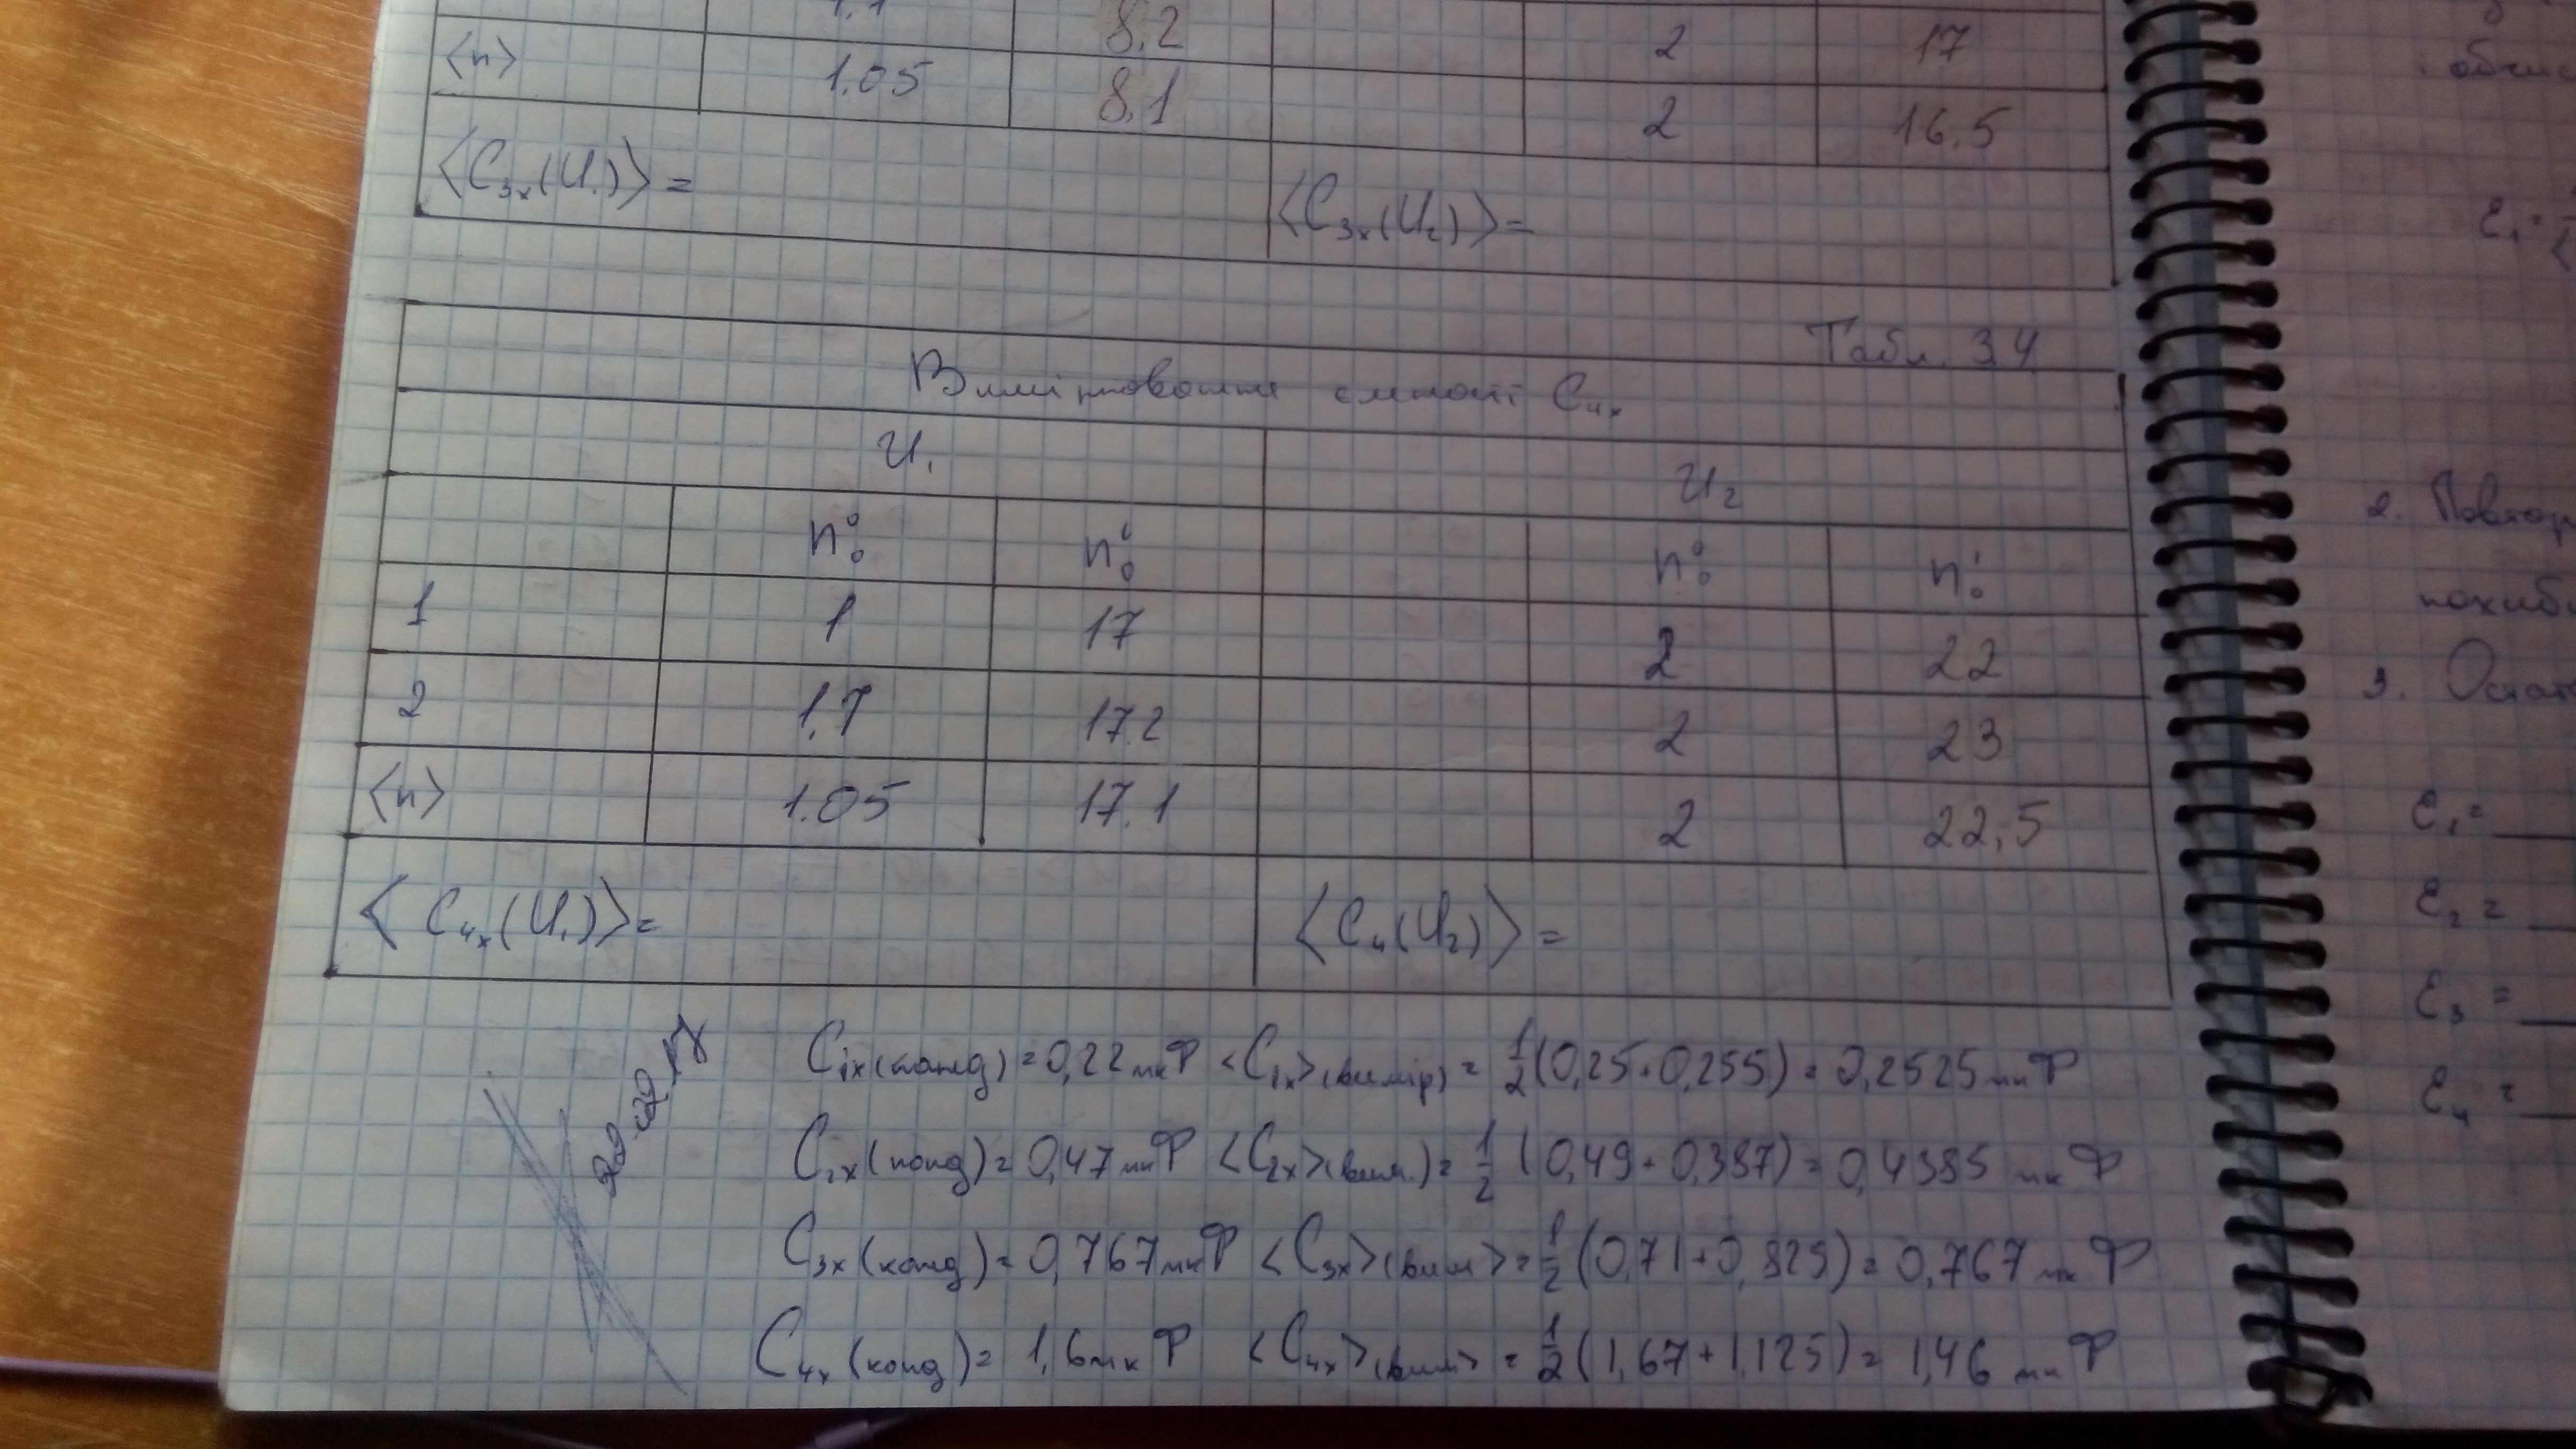 1,1 8,2 2 17
<n> 1.05 8,1 2 16,5
<C₃ₓ(U₁)> = <C₃ₓ(U₂)> =
Табл. 3.4
Вимірювання ємності C₄ₓ
U₁ U₂
n₀⁰ n₀' n₀⁰ n₀'
1 1 17 2 22
2 1,1 17.2 2 23
<n> 1.05 17.1 2 22,5
<C₄ₓ(U₁)> = <C₄(U₂)> =
C₁ₓ(конд) = 0,22 мкФ <C₁ₓ>(вимір) = ½(0,25+0,255) = 0,2525 мкФ
C₂ₓ(конд) = 0,47 мкФ <C₂ₓ>(вим.) = ½(0,49+0,387) = 0,4385 мкФ
C₃ₓ(конд) = 0,767 мкФ <C₃ₓ>(вим> = ½(0,71+0,825) = 0,767 мкФ
C₄ₓ(конд) = 1,6 мкФ <C₄ₓ>(вим> = ½(1,67+1,125) = 1,46 мкФ
ε₁ =
2. Повтор
похиб
3. Остат
ε₁ =
ε₂ =
ε₃ =
ε₄ =